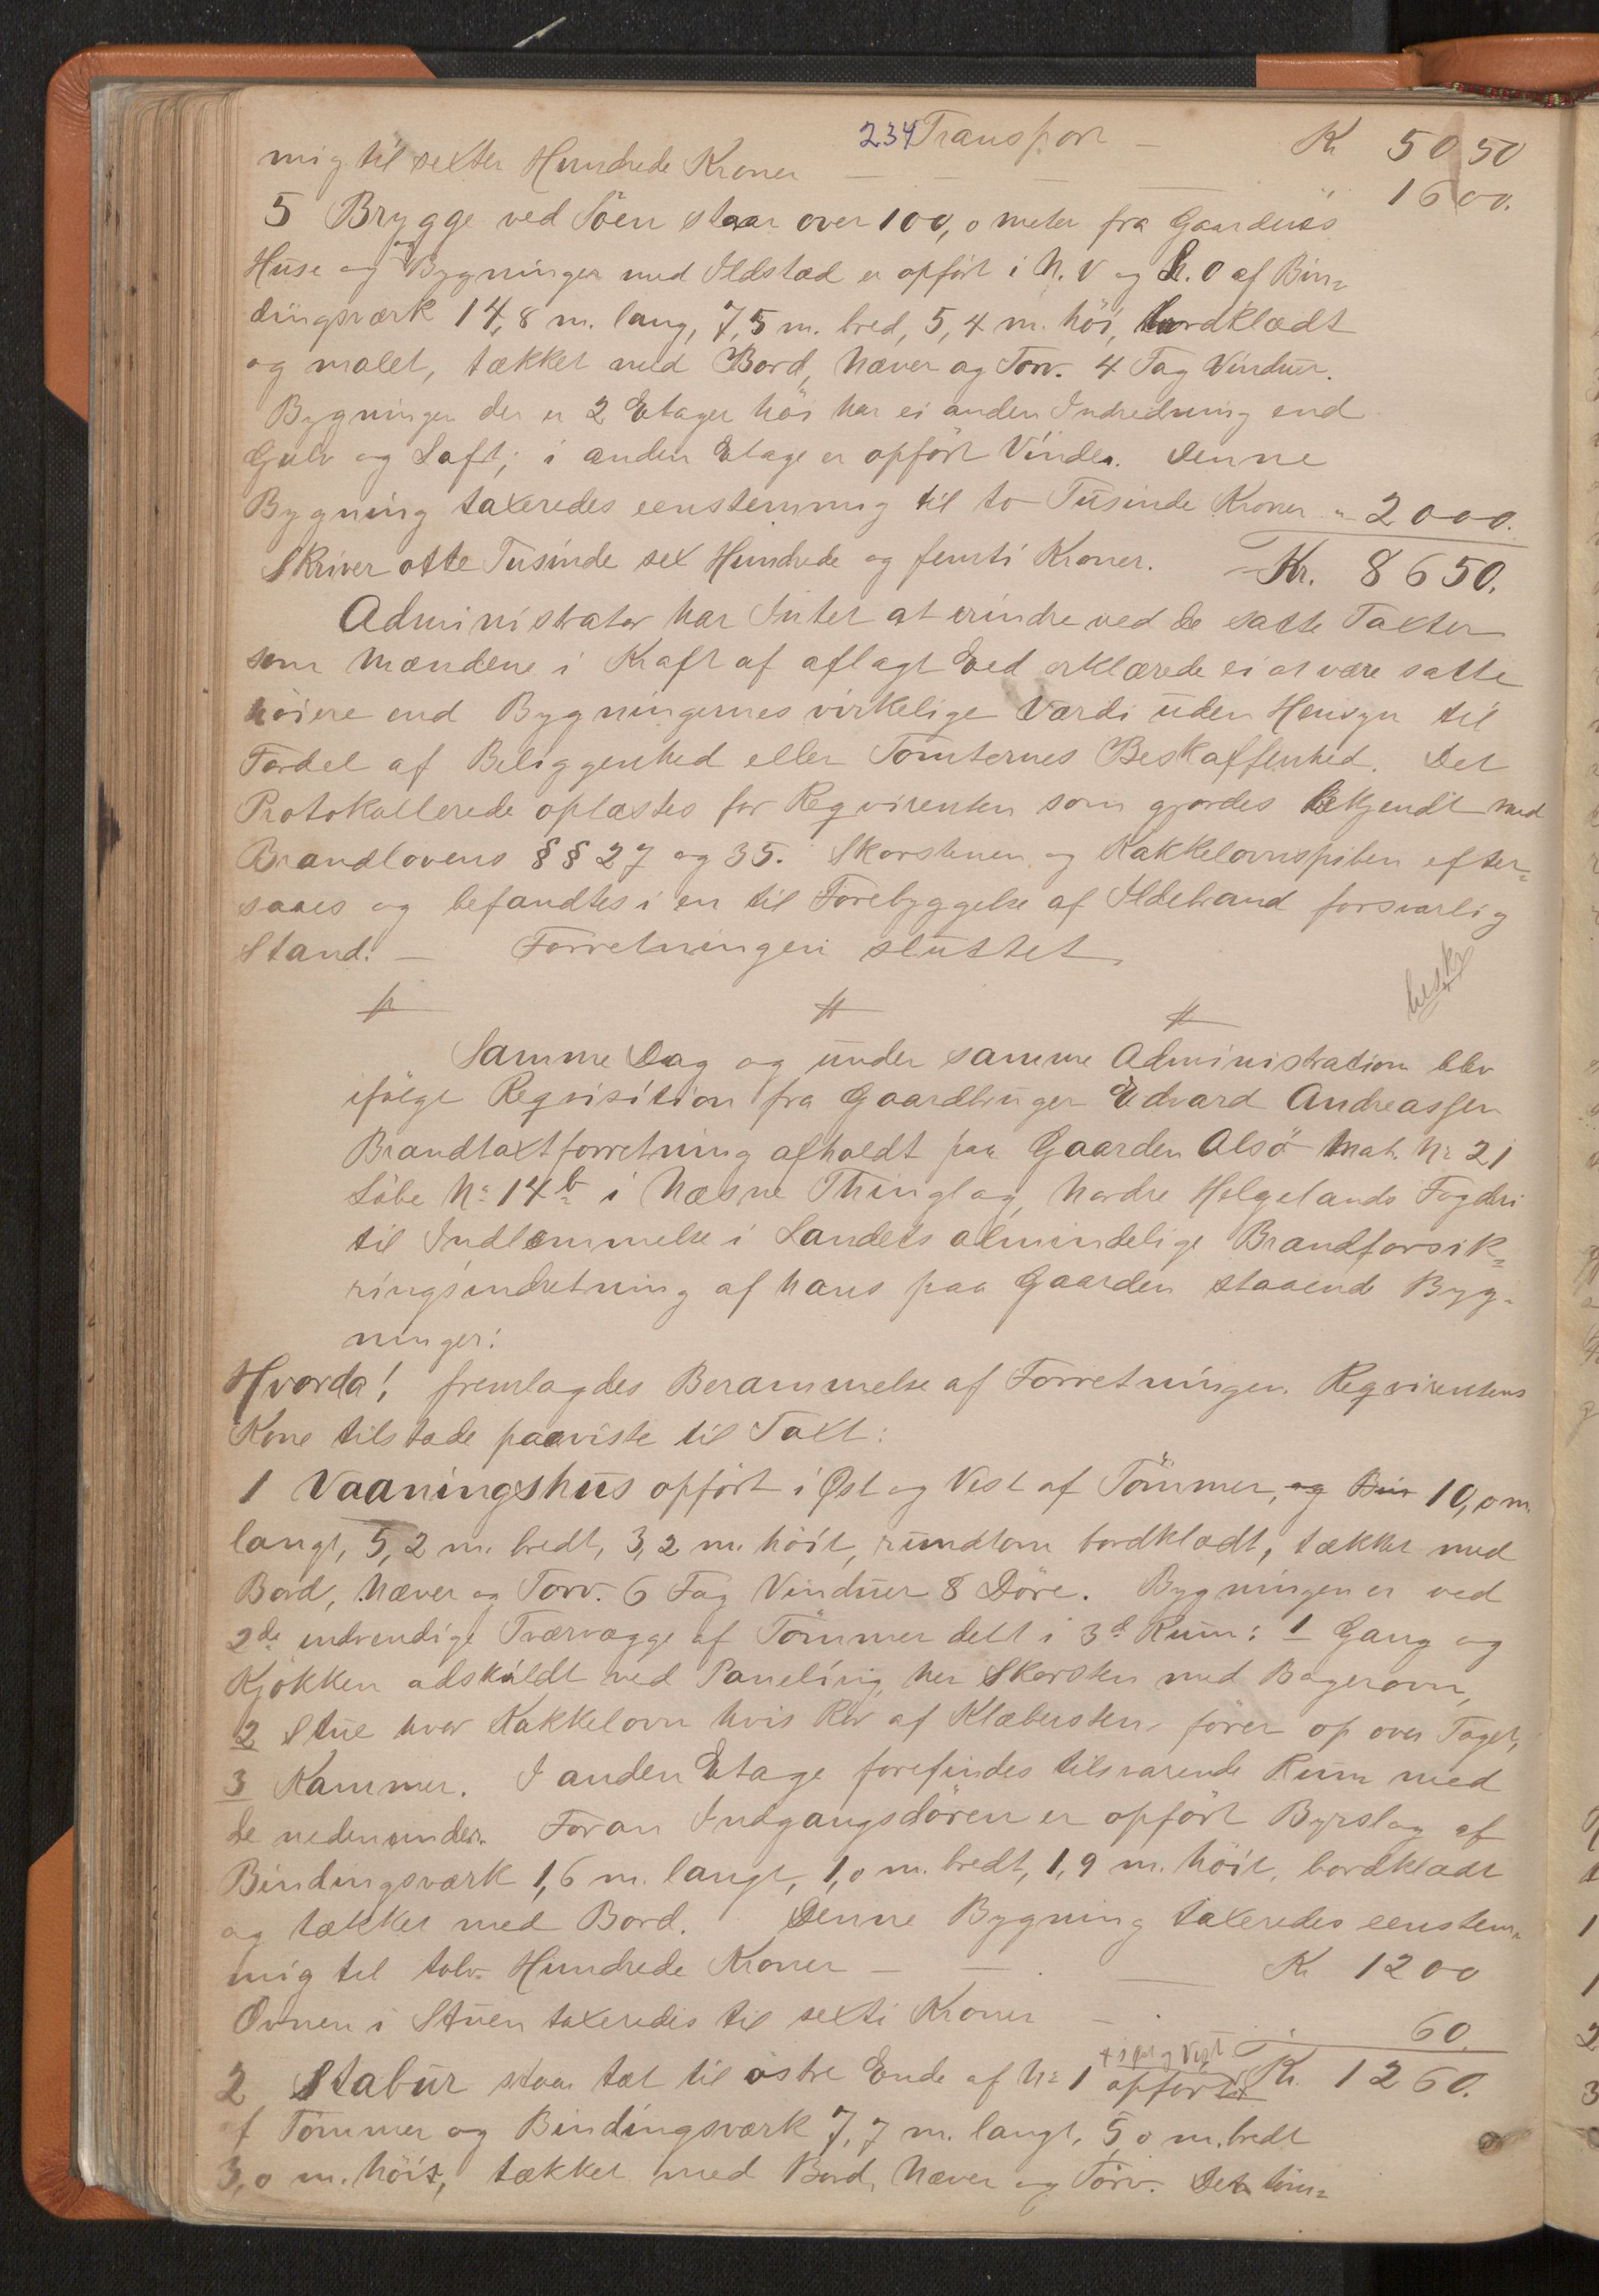 234 Transport – Kr 5050
mig til sexten Hundrede Kroner – – – – " 1600.
5 Brygge ved Söen staar over 100,0 meter fra Gaardens
Huse og Bygninger med Ildsted er opfört i N. V og S. O af Bin=
dingsværk 14,8 m. lang, 7,5 m. bred, 5,4 m. höi, bordklædt
og malet, tækket med Bord, Næver og Torv. 4 Fag Vinduer.
Bygningen der er 2 Etager höi har ei anden Indredning end
Gulv og Loft; i anden Etage er opfört Vinde. Denne
Bygning taxeredes eenstemmig til to Tusinde Kroner " 2000.
Skriver otte Tusinde sex Hundrede og femti Kroner. – Kr. 8650.
Administrator har Intet at erindre ved de satte Taxter
som Mændene i Kraft af aflagt Eed erklærede ei at være satte
höiere end Bygningernes virkelige Værdi uden Hensyn til
Fordel af Beliggenhed eller Tomternes Beskaffenhed. Det
Protokollerede oplæstes for Reqvirenten som gjordes bekjendt med
Brandlovens §§ 27 og 35. Skorstenen og Kakkelovnspiben efter=
saaes og befandtes i en til Forebyggelse af Ildebrand forsvarlig
Stand. – Forretningen sluttet
Samme Dag og under samme Administration blev
ifölge Reqvisition fra Gaardbruger Edvard Andreassen
Brandtaxtforretning afholdt paa Gaarden Alsö Mat. No 21
Löbe No 14b i Næsne Thinglag, Nordre Helgelands Fogderi
til Indlemmelse i Landets almindelige Brandforsik=
ringsindretning af hans paa Gaarden staaende Byg=
ninger:
Hvorda! fremlagdes Berammelse af Forretningen. Reqvirentens
Kone tilstede paaviste til Taxt:
1 Vaaningshus opfört i Øst og Vest af Tömmer, og Bin 10,0 m
langt, 5,2 m. bredt, 3,2 m. höit, rundtom bordklædt, tækket med
Bord, Næver og Torv. 6 Fag Vinduer 8 Döre. Bygningen er ved
2de indvendige Tværvægge af Tömmer delt i 3de Rum: 1 Gang og
Kjökken adskildt ved Paneling, her Skorsten med Bagerovn,
2 Stue hvor Kakkelovn hvis Rör af Klæbersten förer op over Taget,
3 Kammer. I anden Etage forefindes tilsvarende Rum med
de nedenunder. Foran Indgangsdören er opfört Byrslag af
Bindingsværk 1,6 m. langt, 1,0 m. bredt, 1,9 m. höit, bordklædt
og tækket med Bord. Denne Bygning taxeredes eenstem=
mig til tolv Hundrede Kroner – – – Kr 1200
Ovnen i Stuen taxeredes til sexti Kroner – " 60.
+ i Øst og Vest
2 Stabur staar tæt til östre Ende af No 1 opfört + Kr. 1260.
af Tömmer og Bindingsværk 7,7 m. langt, 5,0 m. bredt
3,0 m. höit, tækket med Bord, Næver og Torv. Det töm=